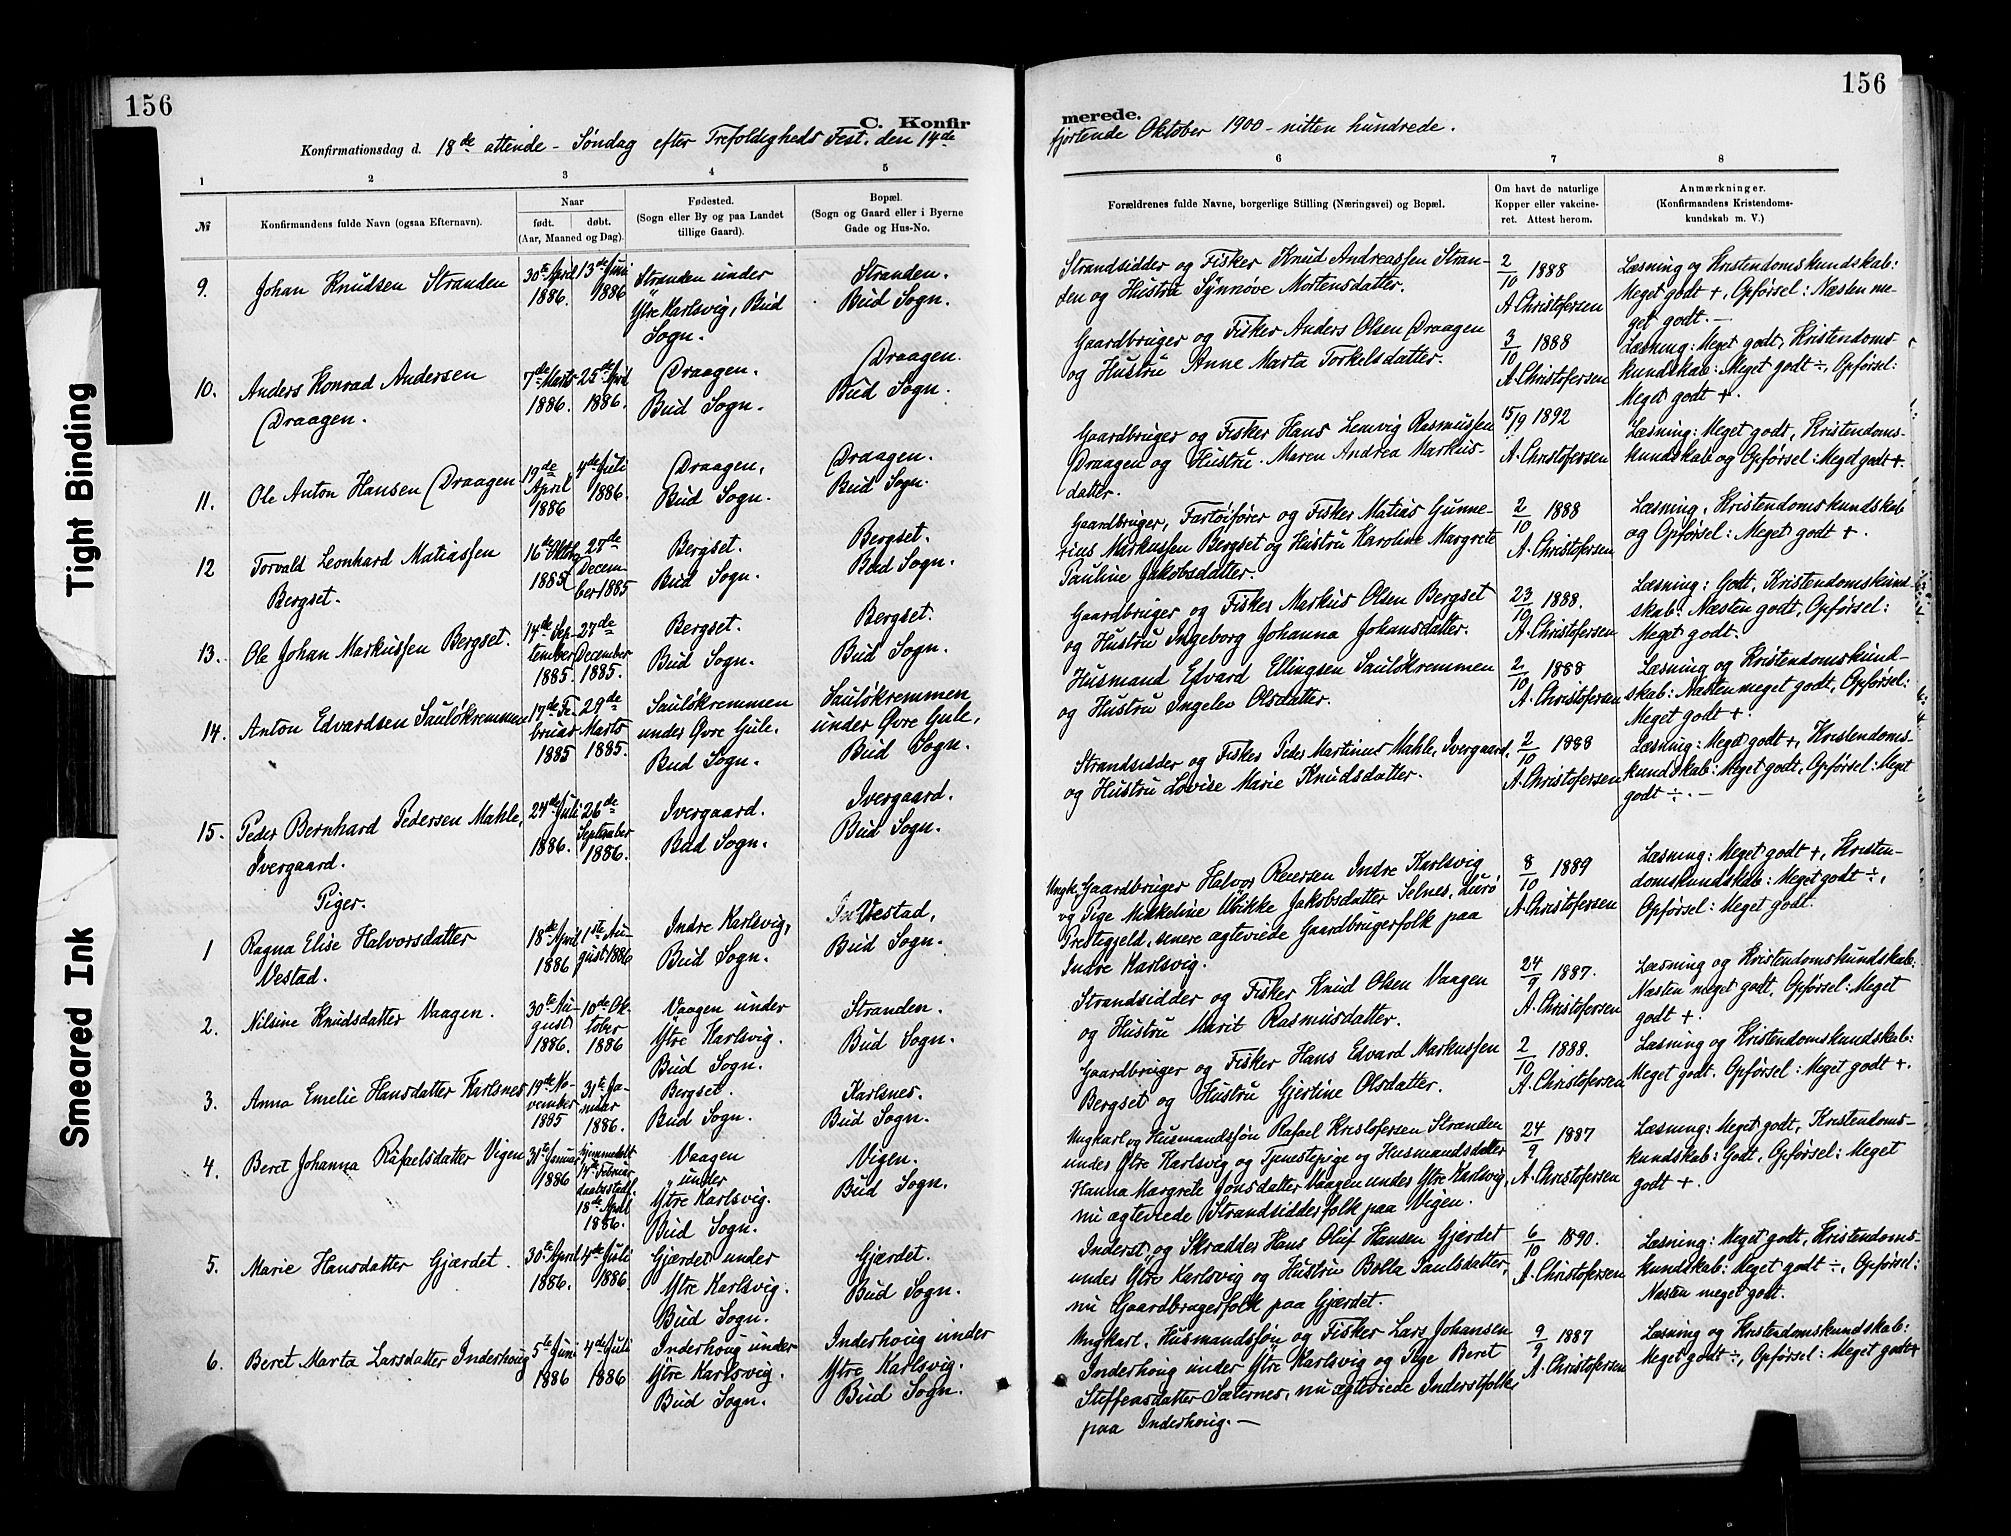 156
C. Konfir
Konfirmationsdag d. 18de attende - Søndag efter Trefoldigheds Fest. den 14de
1 2 3 4 5
№
Konfirmandens fulde Navn (ogsaa Efternavn).
Naar
født. døbt.
(Aar, Maaned og Dag).
Fødested.
(Sogn eller By og paa Landet
tillige Gaard).
Bopæl.
(Sogn og Gaard eller i Byerne
Gade og Hus-No.
9. Johan Knudsen Stranden
30te April
1886.
13de Juni
1886
Stranden under
Ytre Karlsvig, Bud
Sogn.
Stranden.
Bud Sogn.
10. Anders Konrad Andersen
Draagen.
7de Marts
1886.
25de April
1886.
Draagen.
Bud Sogn.
Draagen.
Bud Sogn.
11. Ole Anton Hansen Draagen
19de
April
1886
4de Juli
1886.
Draagen,
Bud Sogn.
Draagen.
Bud Sogn.
12 Torvald Leonhard Matiassen
Bergset.
16de Oktbr
1885
28de
Decem-
ber 1885
Bergset.
Bud Sogn.
Bergset.
Bud Sogn.
13. Ole Johan Markussen Bergset.
14de Sep-
tember
1885
27de
December
1885.
Bergset.
Bud Sogn.
Bergset.
Bud Sogn.
14. Anton Edvardsen Sauløkremmen
17de Fe-
bruar
1885
29de
Marts
1885.
Sauløkremmen
under Øvre Gule.
Bud Sogn.
Sauløkremmen
under Øvre Gule,
Bud Sogn.
15. Peder Bernhard Pedersen Mahle,
Ivergaard.
24de Juli
1886.
26de
September
1886.
Ivergaard.
Bud Sogn.
Ivergaard.
Bud Sogn.
Piger.
1 Ragna Elise Halvorsdatter
Vestad.
18de April
1886
1ste Au-
gust 1886
Indre Karlsvig,
Bud Sogn.
Vestad,
Bud Sogn.
2. Nilsine Knudsdatter Vaagen.
30te Au-
gust
1886.
10de Ok-
tober
1886
Vaagen under
Ytre Karlsvig.
Bud Sogn.
Stranden.
Bud Sogn.
3. Anna Emelie Hansdatter Karlsnes
19de No-
vember
1885
31te Ja-
nuar
1886.
Bergset.
Bud Sogn.
Karlsnes.
Bud Sogn.
4. Beret Johanna Rafaelsdatter Vigen
31te Januar
1886
hjemmedøbt
14de Februar
daabsstadf.
18de April
1886.
Vaagen
under
Ytre Karlsvig.
Bud Sogn.
Vigen.
Bud Sogn.
5. Marie Hansdatter Gjærdet.
30te April
1886.
4de Juli
1886.
Gjærdet under
Ytre Karlsvig.
Bud Sogn.
Gjærdet.
Bud Sogn.
6. Beret Marta Larsdatter Inderhoug
5te Juni
1886
4de Juli
1886
Inderhoug under
Ytre Karlsvig.
Bud Sogn.
Inderhoug under
Ytre Karlsvig.
Bud Sogn.
156
merede.
fjortende Oktober 1900 - nitten hundrede.
6 7 8
Forældrenes fulde Navne, borgerlige Stilling (Næringsvei) og Bopæl.
Om havt de naturlige
Kopper eller vakcine-
ret. Attest herom.
Anmærkninger.
(Konfirmandens Kristendoms-
kundskab m. V.)
Strandsidder og Fisker Knud Andreassen Stran-
den og Hustru Synnøve Mortensdatter.
2/10 1888
A. Christofersen
Læsning og Kristendomskundskab:
Meget godt +, Opførsel: Næsten me-
get godt. —
Gaardbruger og Fisker Anders Olsen Draagen
og Hustru Anne Marta Torkelsdatter.
3/10 1888
A. Christofersen
Læsning: Meget godt, Kristendoms
kundskab: Meget godt ÷, Opførsel:
Meget godt +.
Gaardbruger og Fisker Hans Lemvig Rasmussen
Draagen og Hustru Maren Andrea Markus-
datter.
15/9 1892
A. Christofersen
Læsning: Meget godt, Kristendoms-
kundskab og Opførsel: Meget godt +.
Gaardbruger, Fartøifører og Fisker Matias Gunne-
rius Markussen Bergset og Hustru Karoline Margrete
Pauline Jakobsdatter.
2/10 1888
A. Christofersen
Læsning, Kristendomskundskab
og Opførsel: Meget godt +.
Gaardbruger og Fisker Markus Olsen Bergset
og Hustru Ingeborg Johanna Johansdatter.
23/9 1888.
A. Christofersen
Læsning: Godt, Kristendomskund-
skab: Næsten godt, Opførsel:
Meget godt.
Husmand Edvard Ellingsen Sauløkremmen
og Hustru Ingelen Olsdatter.
2/10 1888
A. Christofersen
Læsning og Kristendomskund-
skab: Næsten meget godt, Opførsel:
Meget godt +.
Strandsidder og Fisker Peder Martinus Mahle, Ivergaard,
og Hustru Lovise Marie Knudsdatter.
2/10 1888
A. Christofersen
Læsning: Meget godt +, Kristendoms-
kundskab: Meget godt, Opførsel: Meget
godt ÷. —
Ungk. Gaardbruger Halvor Reiersen Indre Karlsvig
og Pige Mikkeline Ulrikke Jakobsdatter Selnes, Lurø
Prestegjeld, senere ægteviede Gaardbrugerfolk paa
Indre Karlsvig.
8/10 1889
A. Christofersen
Læsning: Meget godt +, Kristen-
domskundskab: Meget godt ÷,
Opførsel: Meget godt.
Strandsidder og Fisker Knud Olsen Vaagen
og Hustru Marit Rasmusdatter.
24/9 1887.
A. Christofersen
Læsning og Kristendomskundskab:
Næsten meget godt, Opførsel: Meget
godt +.
Gaardbruger og Fisker Hans Edvard Markussen
Bergset og Hustru Gjertine Olsdatter.
2/10 1888.
A. Christofersen
Læsning og Kristendomskundskab:
Meget godt. Opførsel: Meget godt +.
Ungkarl og Husmandssøn Rafael Kristofersen Stranden
under Ytre Karlsvig og Tjenestepige og Husmandsdatter
Hanna Margrete Jonsdatter Vaagen under Ytre Karlsvig,
nu ægteviede Strandsidderfolk paa Vigen.
24/9 1887
A. Christofersen
Læsning: Meget godt, Kristendoms-
kundskab: Godt, Opførsel: Meget
godt +.
Inderst og Skrædder Hans Oluf Hansen Gjærdet
under Ytre Karlsvig og Hustru Bolla Paulsdatter,
nu Gaardbrugerfolk paa Gjærdet.
6/10 1890.
A. Christofersen
Læsning: Meget godt, Kristendoms-
kundskab: Meget godt ÷, Opførsel:
Næsten meget godt.
Ungkarl, Husmandssøn og Fisker Lars Johansen
Inderhoug under Ytre Karlsvig og Pige Beret
Steffensdatter Sælernes, nu ægteviede Inderstfolk
paa Inderhoug. —
9/9 1887
A. Christofersen
Læsning og Kristendomskundskab:
Meget godt ÷, Opførsel: Meget godt +
Tight Binding
Smeared Ink